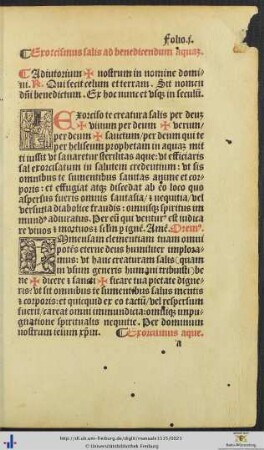 Folio.j.
Exorcismus salis ad benedicendum aquaz.
Adiutorium ✠ nostrum in nomine domi
ni. R. Qui fecit celum et terram. Sit nomen
dñi benedictum. Ex hoc nunc et vsqz in seculũ.
EXorcizo te creatura salis per deuz
viuum per deum ✠ verum/
per deum ✠ sanctum/ per deum qui te
per heliseum prophetam in aquaz mit
ti iussit vt sanaretur sterilitas aque: vt efficiaris
sal exorcisatum in salutem credentium: vt sis
omnibus te sumentibus sanitas anime et cor
poris: et effugiat atqz discedat ab eo loco quo
aspersus fueris omnis fantasia/ z nequitia/ vel
versutia diabolice fraudis: omnisqz spiritus im
mundꝰ adiuratus. Per eũ qui venturꝰ est iudica
re viuos z mortuos z sclm p ignẽ. Amẽ. Orem⁹.
IMmensam clementiam tuam omni
potẽs eterne deus humiliter implora
mus: vt hanc creaturam salis quam
in vsum generis humani tribuisti be
ne ✠ dicere z sancti ✠ ficare tua pietate digne
ris: vt sit omnibus te sumentibus salus mentis
z corporis: et quicquid ex eo tactũ vel respersum
fuerit careat omni immundicia: omniqz impu
gnatione spiritualis nequitie. Per dominum
nostrum iesum xpm̃. Exorcismus aque.
a
© Universitätsbibliothek Freiburg
Baden-Württemberg